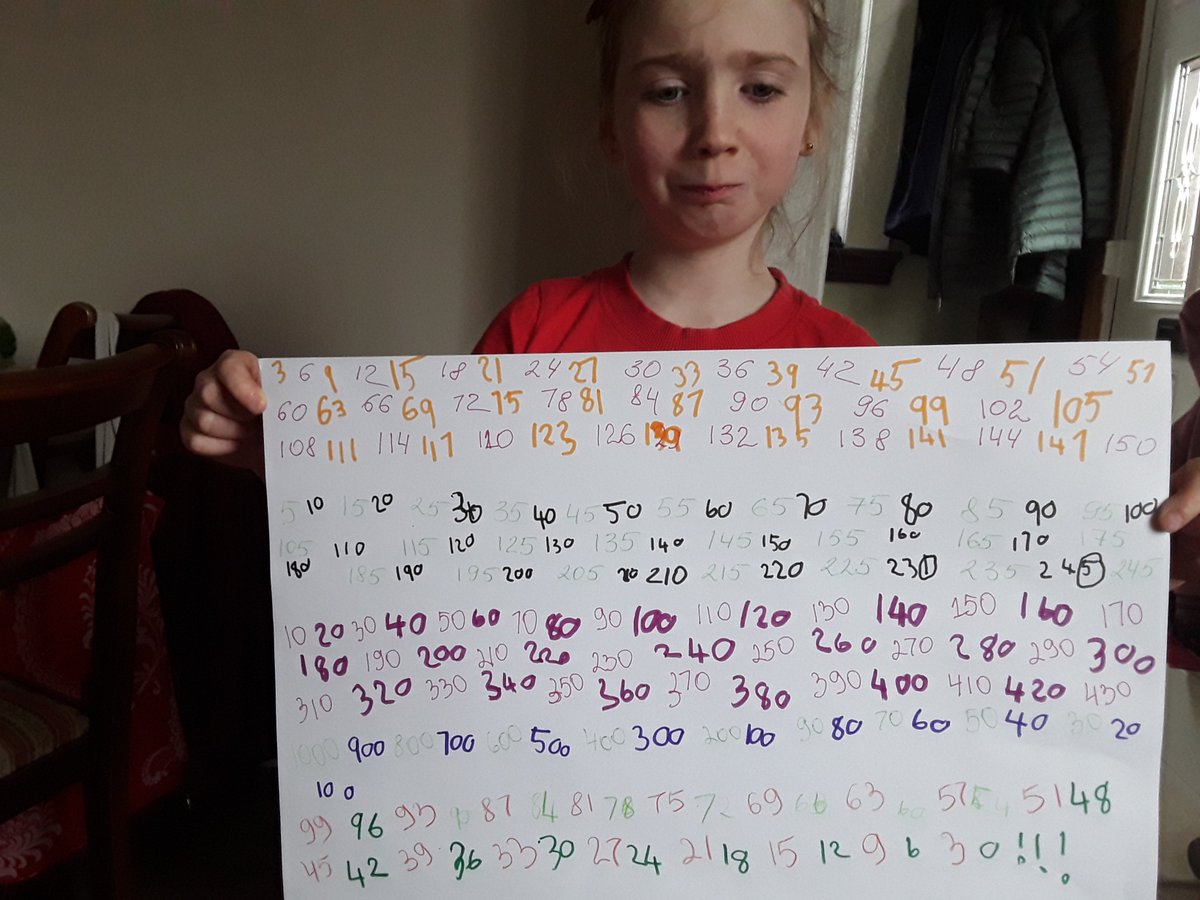 3 6 9 12 15 18 21 24 27 30 33 36 39 42 45 48 51 54 57
60 63 66 69 72 75 78 81 84 87 90 93 96 99 102 105
108 111 114 117 120 123 126 129 132 135 138 141 144 147 150
5 10 15 20 25 30 35 40 45 50 55 60 65 70 75 80 85 90 95 100
105 110 115 120 125 130 135 140 145 150 155 160 165 170 175
180 185 190 195 200 205 210 215 220 225 230 235 245 245
10 20 30 40 50 60 70 80 90 100 110 120 130 140 150 160 170
180 190 200 210 220 230 240 250 260 270 280 290 300
310 320 330 340 350 360 370 380 390 400 410 420 430
1000 900 800 700 600 500 400 300 200 100 90 80 70 60 50 40 30 20
10 0
99 96 93 90 87 84 81 78 75 72 69 66 63 60 57 54 51 48
45 42 39 36 33 30 27 24 21 18 15 12 9 6 3 0 !!!